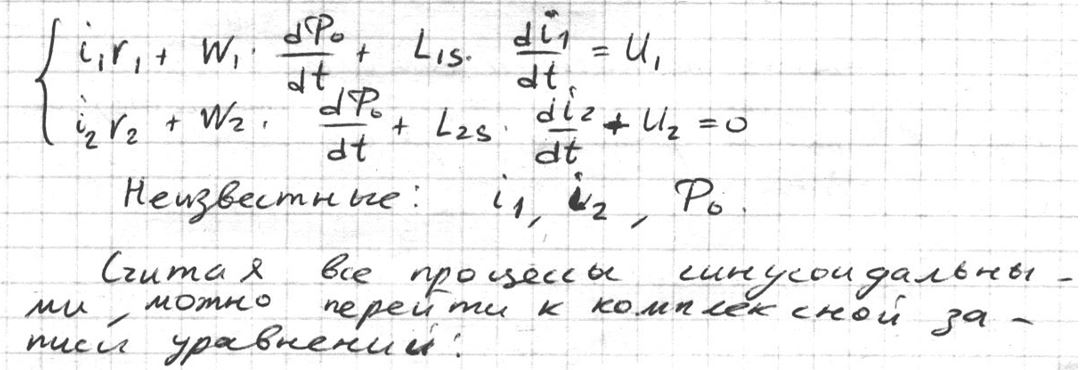 { i₁r₁ + W₁ · dФ₀/dt + L₁s · di₁/dt = U₁
i₂r₂ + W₂ · dФ₀/dt + L₂s · di₂/dt + U₂ = 0
Неизвестные: i₁, i₂, Ф₀.
Считая все процессы синусоидальны-
ми, можно перейти к комплексной за-
писи уравнений: